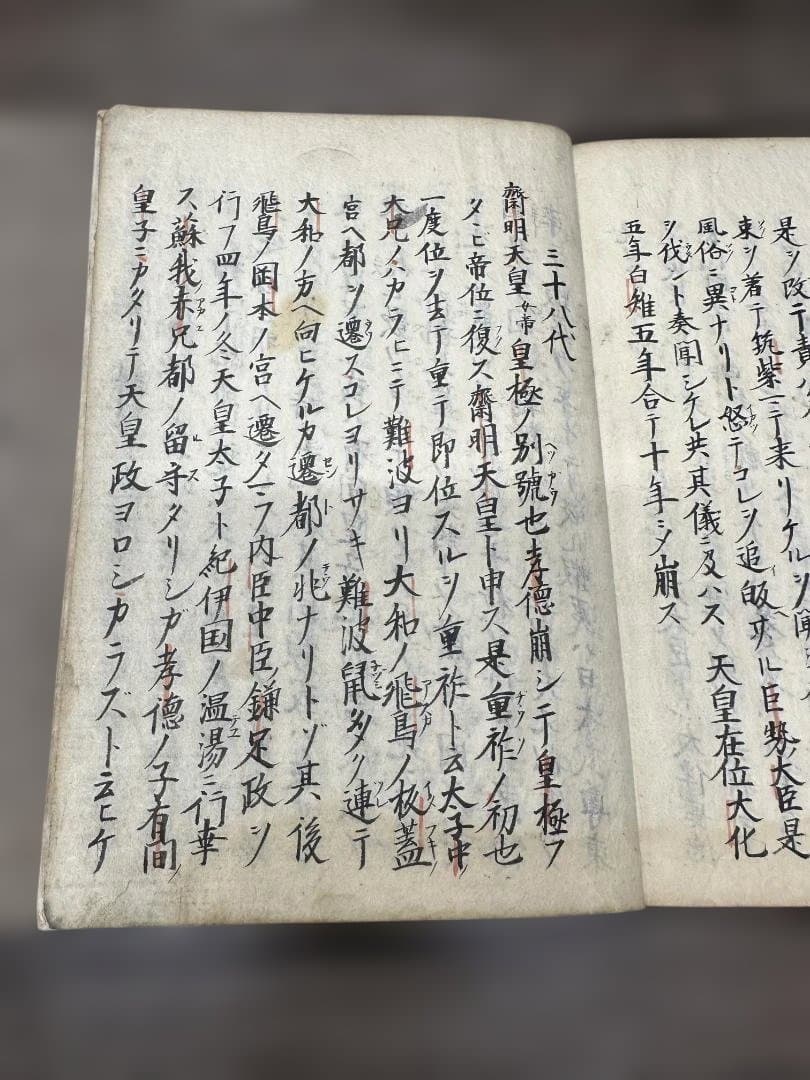 是ヲ改テ責
束ヲ着テ筑紫ニテ来リケルヲ聞
風俗ニ異ナリト怒テコレヲ追皈サル巨勢ノ大臣是
ヲ伐ント奏聞シケレ共其儀ニ及ハス 天皇在位大化
五年白雉五年合テ十年ニメ崩ス
三十八代
齋明天皇女帝皇極ノ別號也孝徳崩シテ皇極フ
タヒ帝位ニ復ス齋明天皇ト申ス是重祚ノ初也
一度位ヲ去テ重テ即位スルヲ重祚ト云太子中ノ
大兄ノハカラヒニテ難波ヨリ大和ノ飛鳥ノ板蓋ノ
宮ヘ都ヲ遷スコレヨリサキ難波鼠多ク連テ
大和ノ方ヘ向ヒケルカ遷都ノ兆ナリトゾ其後
飛鳥ノ岡本ノ宮ヘ遷タマフ内臣中臣鎌足政ヲ
行フ四年ノ冬天皇太子ト紀伊国ノ温湯ニ行幸
ス蘇我赤兄都ノ留守タリシガ孝徳ノ子有間ノ
皇子ニカタリテ天皇政ヨロシカラズト云ヒケ